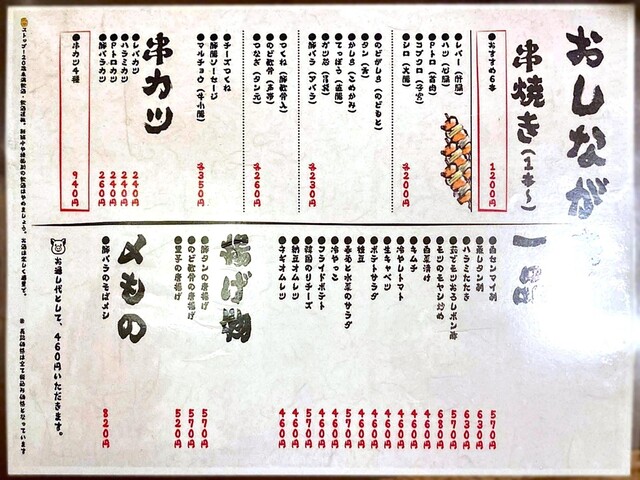 おしながき
串焼き（1本〜）
●おすすめ6本 1200円
●レバー（肝臓）
●ハツ（心臓）
●Pトロ（首肉）
●コブクロ（子宮）
●シロ（大腸）
各200円
●のどがしら（のどもと）
●タン（舌）
●かしら（こめかみ）
●てっぽう（直腸）
●ガツ芯（胃袋）
●豚バラ（アバラ）
各230円
●つくね（軟骨入）
●のど軟骨（声帯）
●つなぎ（タン元）
各260円
●チーズつくね
●豚腸ソーセージ
●マルチョウ（牛小腸）
各350円
串カツ
●レバカツ 240円
●ハラミカツ 240円
●Pトロカツ 240円
●豚バラカツ 260円
●串カツ4種 940円
一品
●白センマイ刺 570円
●蒸しタン刺 630円
●ハラミたたき 630円
●茹でモツおろしポン酢 570円
●モツのモヤシ炒め 680円
●白菜漬け 460円
●キムチ 460円
●冷やしトマト 460円
●生キャベツ 460円
●ポテトサラダ 460円
●枝豆 460円
●春菊と水菜のサラダ 570円
●冷やっこ 460円
●フライドポテト 460円
●韓国のりチーズ 570円
●納豆オムレツ 460円
●ネギオムレツ 460円
揚げ物
●豚タンの唐揚げ 570円
●のど軟骨の唐揚げ 570円
●里芋の唐揚げ 520円
〆もの
●豚バラのそばメシ 820円
お通し代として、460円いただきます。
ストップ！20歳未満飲酒・飲酒運転。妊娠中や授乳期の飲酒はやめましょう。お酒は楽しく適量で。
※表記価格は全て税込み価格となっています